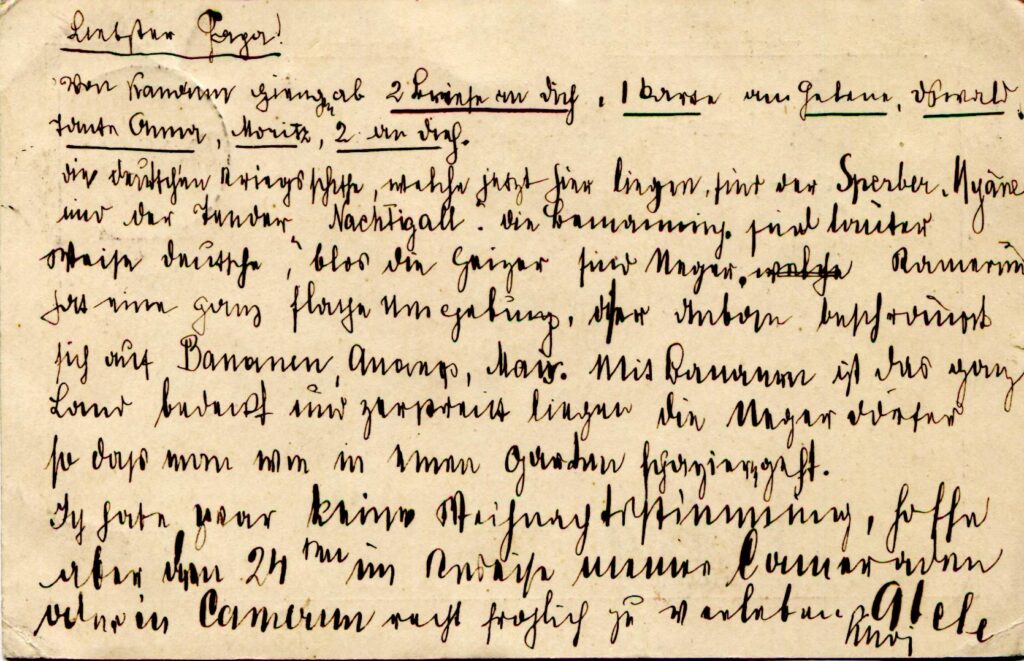 Liebster Papa!
Von Kamerun gieng ab 2 Briefe an dich, 1 Karte an Helene, Oswald,
Tante Anna, Moritz, 2 an dich.
die deutschen Kriegsschiffe, welche jetzt hier liegen, sind der Sperber, Hyäne
und der Tender "Nachtigall". die Bemannung sind lauter
Weise deutsche, blos die Heizer sind Neger, welche Kamerun
hat eine ganz flache Umgebung, der Anbau beschränkt
sich auf Bananen, Ananas, Mais. Mit Bananen ist das ganz
Land bedeckt und zerstreut liegen die Neger dörfer
so daß man wie in einen Garten spazieren geht.
Ich habe zwar keine Weihnachtsstimmung, hoffe
aber den 24ten im Kreise meiner Cameraden
oder in Camerun recht fröhlich zu verleben.